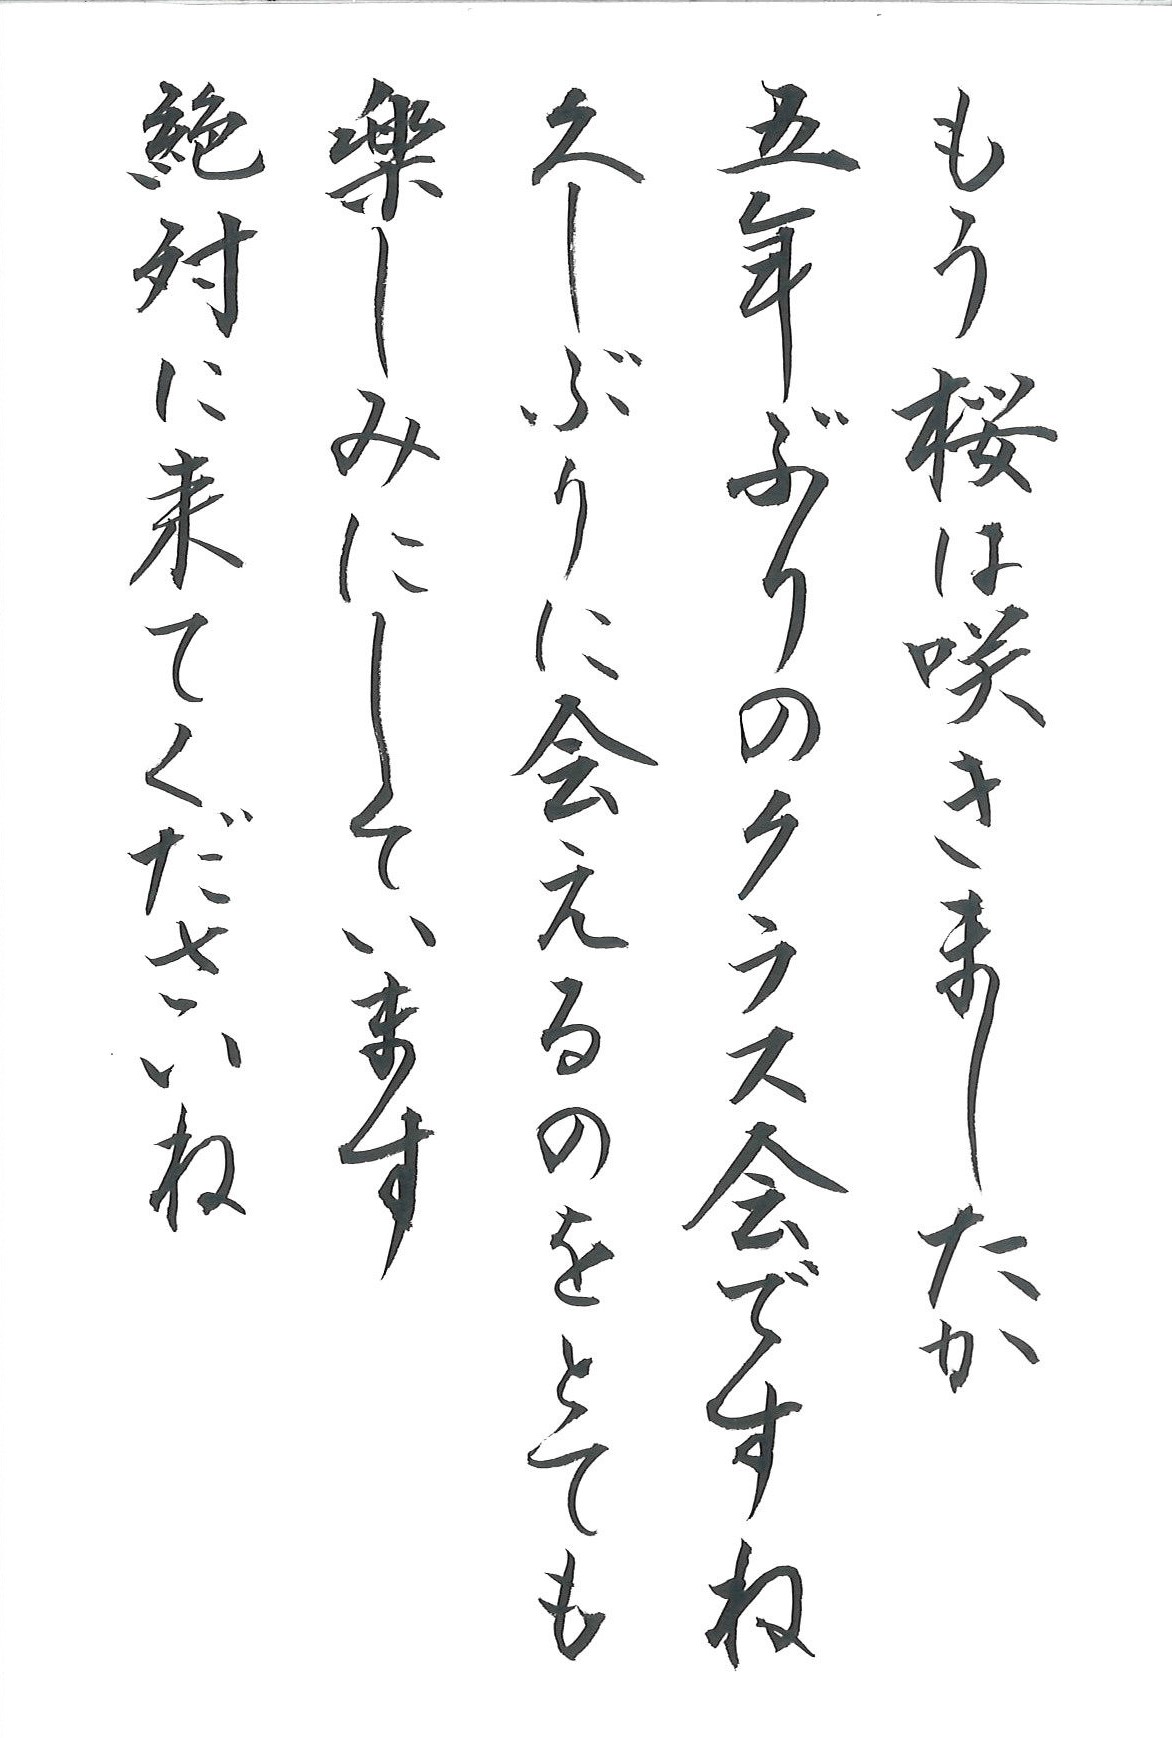 もう桜は咲きましたか
五年ぶりのクラス会ですね
久しぶりに会えるのをとても
楽しみにしています
絶対に来てくださいね